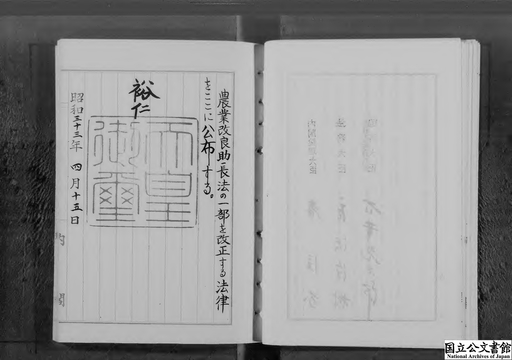 農業改良助長法の一部を改正する法律
をここに公布する。
裕仁
天皇
御璽
昭和三十三年 四月十五日
内閣
国立公文書館
National Archives of Japan